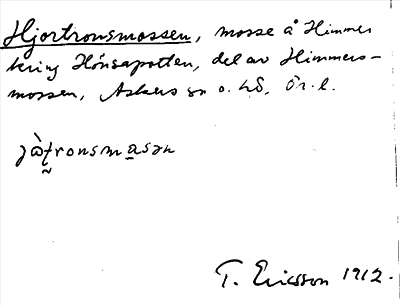 Hjortronsmossen, mosse å Himmer
kring Hönsapotten, del av Himmers-
mossen, Askers sn o. hd, Ör. l.
T. Ericsson 1912.